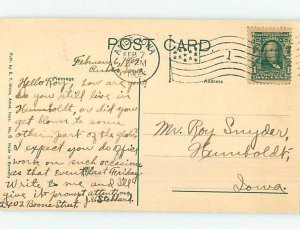 POST CARD
FEB 7
February 6,
Hello Roy: How are
Message
Address
you do you still live in
Humboldt, or did you
get blown to some
other part of the globe
I expect you do office
work on such occasions
as that event last Friday.
Write to me and I'll
give it prompt attention
2402 Boone Street J. W. Stoddard.
Mr. Roy Snyder,
Humboldt,
Iowa.